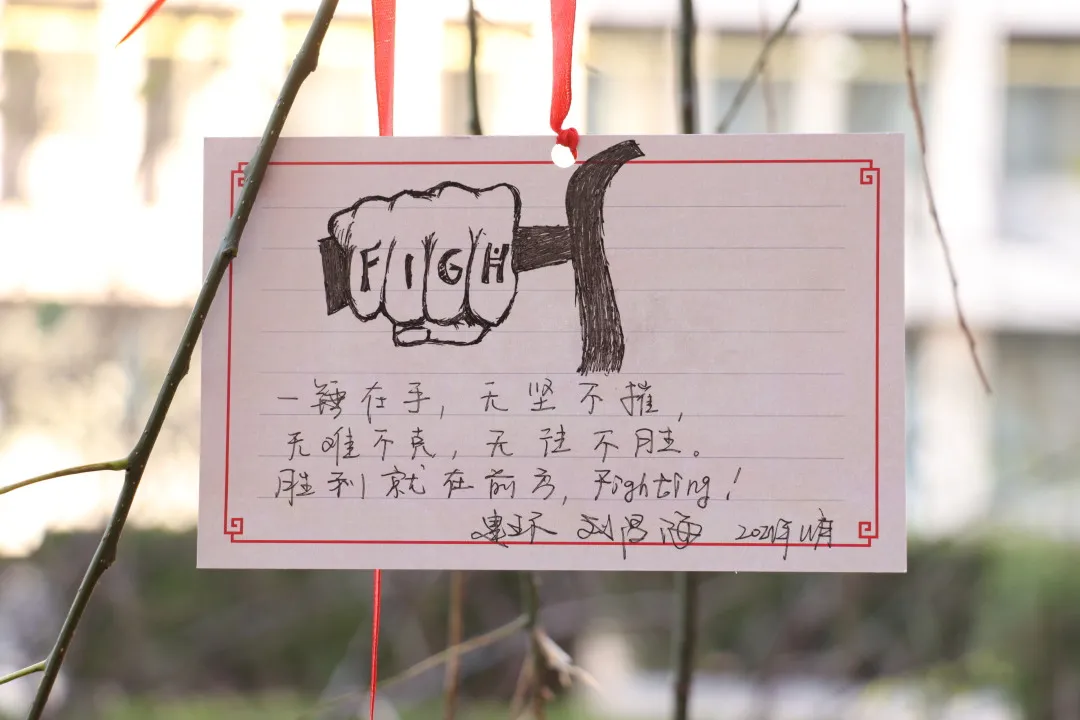 FIGH
一镐在手,无坚不摧,
无难不克,无往不胜。
胜利就在前方,Fighting!
建环 刘昌 2021年